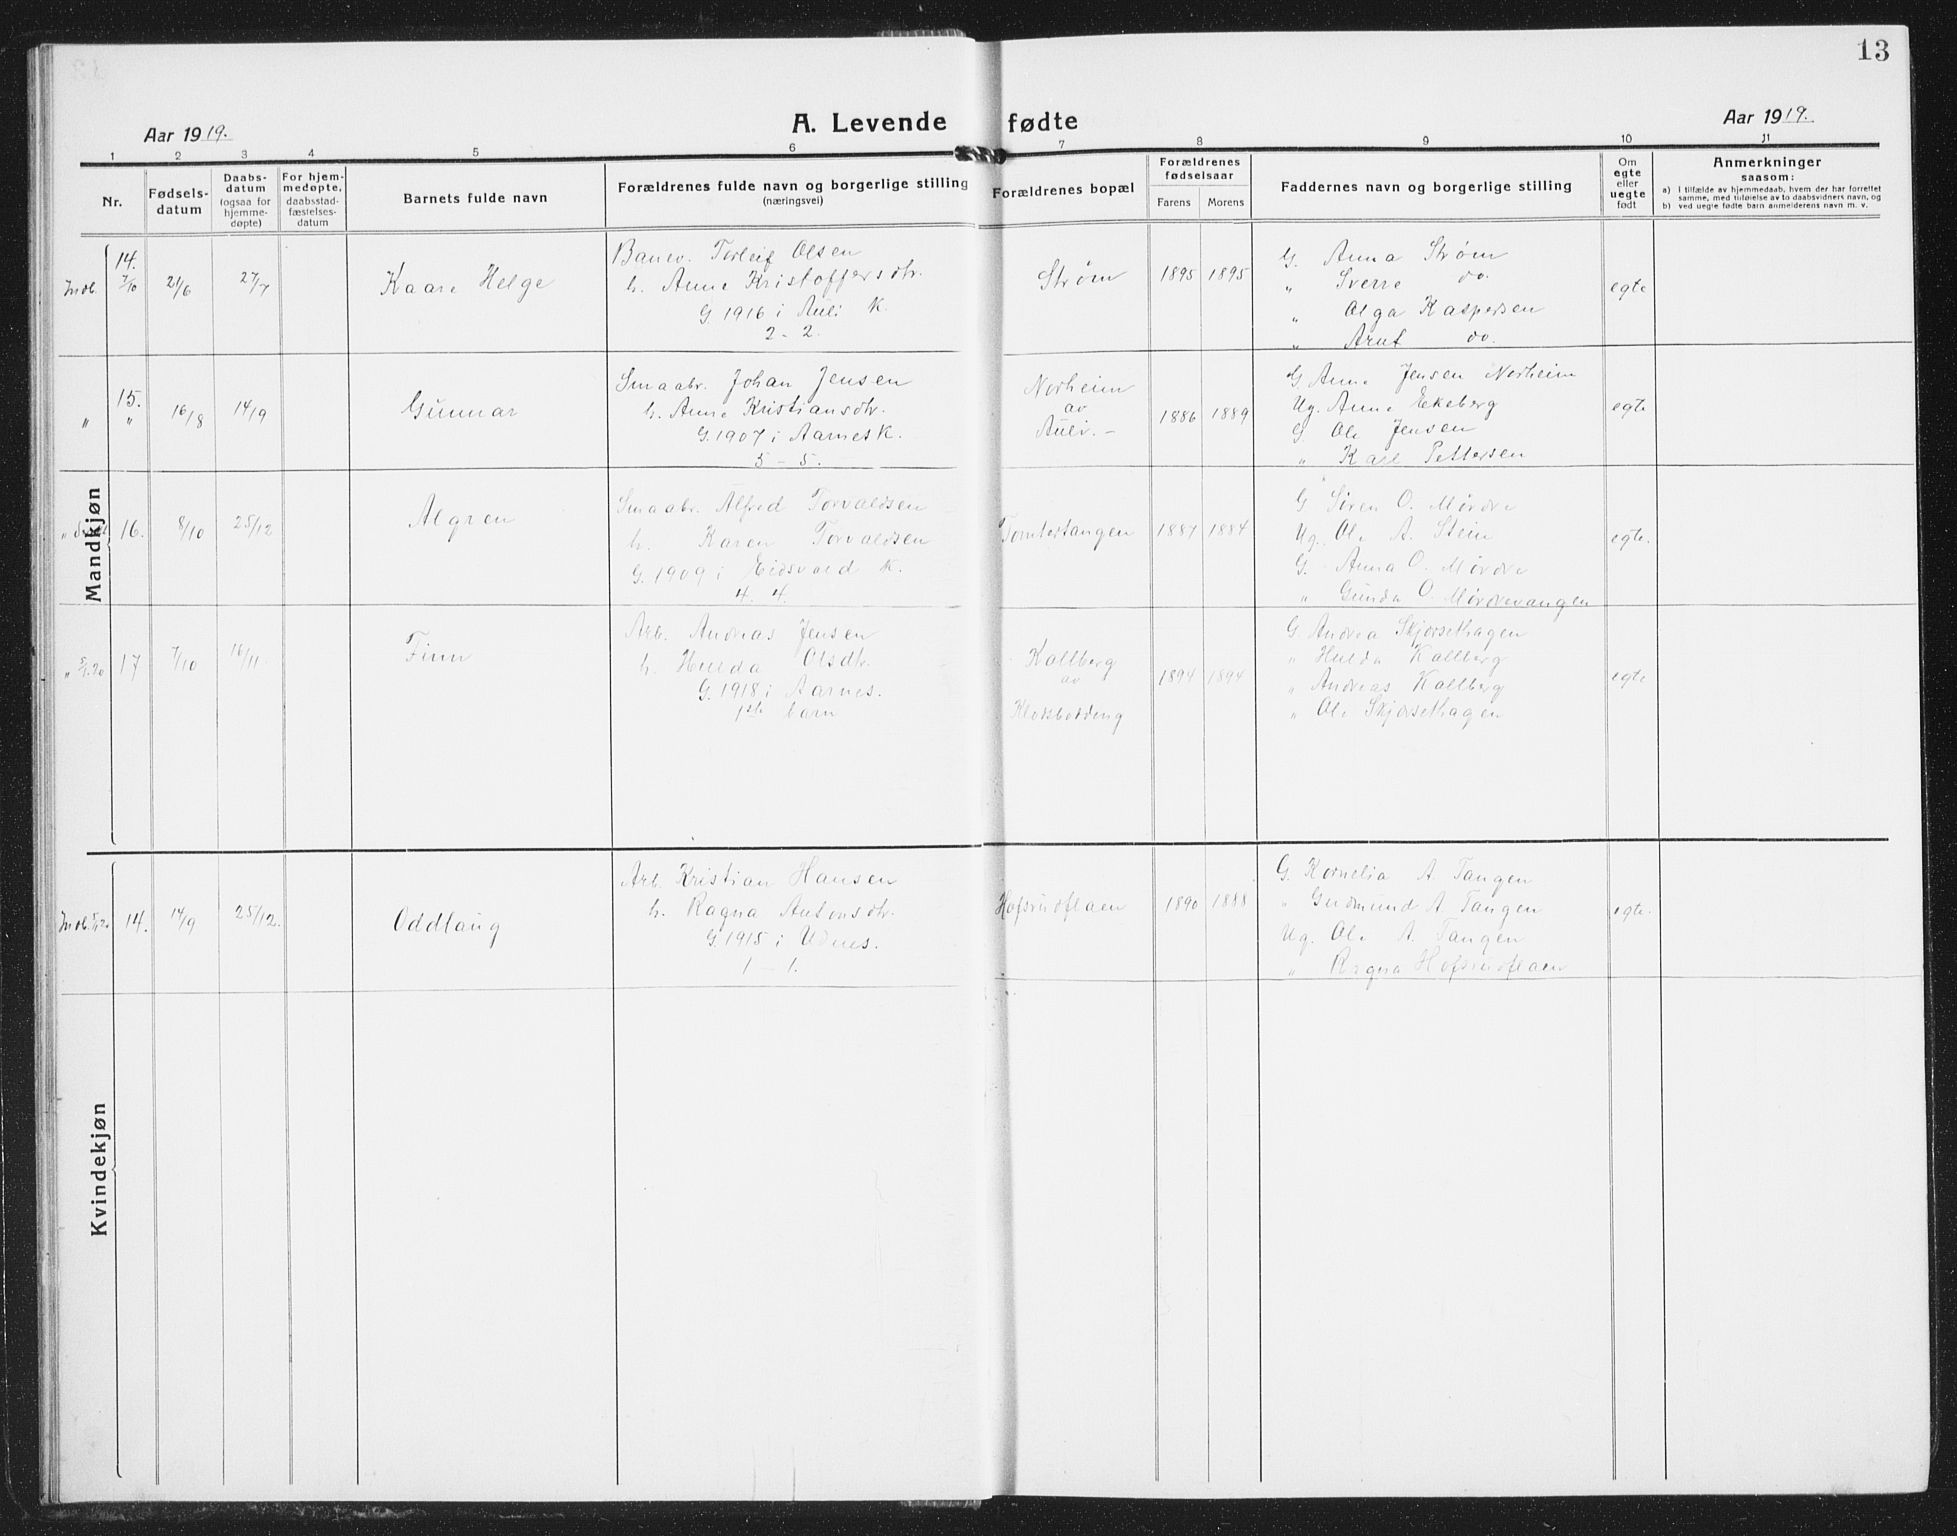 13
A. Levende fødte
Aar 1919.
Aar 1919.
1 2 3 4 5 6 7 8 9 10 11
Nr.
Fødsels-
datum
Daabs-
datum
(ogsaa for
hjemme-
døpte)
For hjem-
medøpte,
daabsstad-
fæstelses-
datum
Barnets fulde navn
Forældrenes fulde navn og borgerlige stilling
(næringsvei)
Forældrenes bopæl
Forældrenes
fødselsaar
Farens Morens
Faddernes navn og stilling
Om
egte
eller
uegte
født
Anmerkninger
saasom:
a) I tilfælde av hjemmedaab, hvem der har forrettet
samme, med tilføielse av to daabsvidners navn, og
b) ved uegte fødte barn anmelderens navn m. v.
Mandkjøn
Indb. 14. 7/10
21/6
27/7
Kaare Helge
Banev. Torleif Olsen
h. Anne Kristoffersdtr.
G. 1916 i Auli K.
2 - 2.
Strøm
1895 1895
G. Anna Strøm
" Sverre do.
" Olga Kaspersen
" Arnt do.
egte
" 15. "
16/8
14/9
Gunnar
Smaabr. Johan Jensen
h. Anne Kristiansdtr.
G. 1907 i Aarnes K.
5 - 5.
Norheim
av
Auli. -
1886 1889
G Anne Jensen Norheim
Ug. Anne Ekeberg
G Ole Jensen
" Karl Pettersen
egte
" 16.
8/10
25/12
Algren
Smaabr. Alfred Torvaldsen
h. Karen Torvaldsen
G. 1909 i Eidsvold K.
4. 4.
Tomtertangen
1887 1884
G Søren O. Mørdre
Ug. Ole A. Stein
G. Anna O. Mørdre
" Gunda O. Mørdrevangen
egte.
" 5/1.20 17
7/10
16/11.
Finn
Arb. Andreas Jensen
h. Hulda Olsdtr.
G. 1918 i Aarnes.
1ste barn
Kallberg
av
1894 1894
G. Andrea Skjørsethagen
" Hulda Kallberg
" Andreas Kallberg
" Ole Skjørsethagen
egte
Kvindekjøn
Indb. 14.
14/9
25/12.
Oddlaug
Arb. Kristian Hansen
h. Ragna Antonsdtr.
G. 1915 i Udnes.
1 - 1.
Hofsrudflaen
1890 1888
G. Kornelia A Tangen
" Gudmund A Tangen
Ug. Ole A. Tangen
" Ragna Hofsrudflaen
egte.